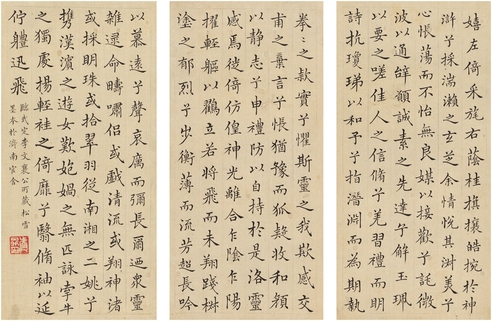 嬉左倚采旄右蔭桂旗攘皓捥於神
滸兮採湍瀨之玄芝余情悅其淑美兮
心振蕩而不怡無良媒以接歡兮託微
波以通辭願誠素之先達兮解玉珮
以要之嗟佳人之信脩兮羌習禮而明
詩抗瓊珶以和予兮指潛淵而為期執
拳拳之款實兮懼斯靈之我欺感交
甫之棄言兮悵猶豫而狐疑收和顏
以静志兮申禮防以自持於是洛靈
感焉徙倚仿偟神光離合乍陰乍陽
擢輕軀以鶴立若將飛而未翔踐椒
塗之郁烈兮步衡薄而流芳超長吟
以慕遠兮聲哀厲而彌長爾迺衆靈
雜遝命疇嘯侶或戲清流或翔神渚
或採明珠或拾翠羽從南湘之二姚兮
攜漢濱之遊女歎媧之無匹詠牽牛
之獨處揚輕袿之倚靡兮翳脩袖以延
佇軆迅飛
臨武定李文襄公所藏松雪
墨本於濟南官舍